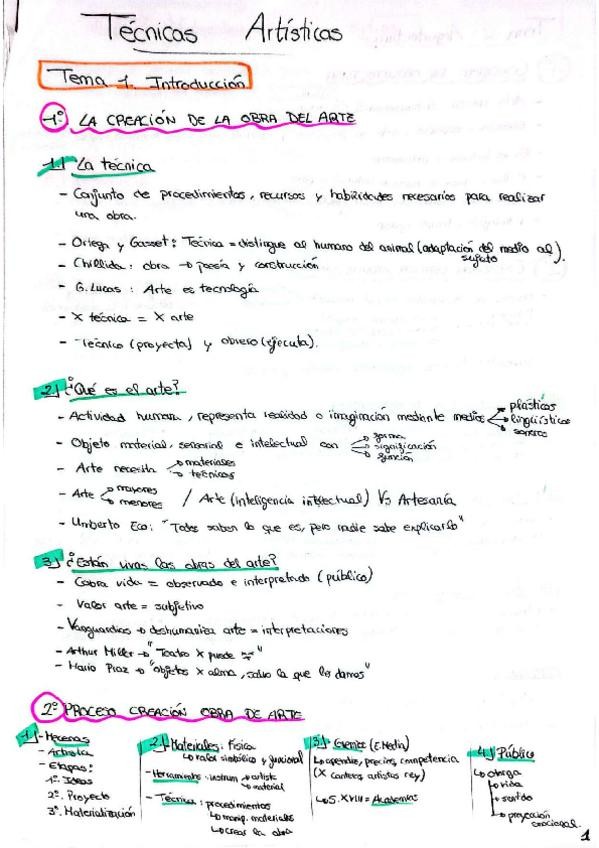 Técnicas Artísticas
Tema 1. Introducción
1º LA CREACIÓN DE LA OBRA DEL ARTE
1.) La técnica
- Conjunto de procedimientos, recursos y habilidades necesarios para realizar
una obra.
- Ortega y Gasset: Técnica = distingue al humano del animal (adaptación del medio al sujeto).
- Chillida: obra → poesía y construcción
- G. Lucas: Arte es tecnología
- X técnica = X arte
- Técnico (proyecta) y obrero (ejecuta).
2.) ¿Qué es el arte?
- Actividad humana, representa realidad o imaginación mediante medios → plásticos
→ lingüísticos
→ sonoros
- Objeto material, sensorial e intelectual con → forma
→ significación
→ función
- Arte necesita → materiales
→ técnicas
- Arte < mayores
menores / Arte (inteligencia intelectual) Vs Artesanía
- Umberto Eco: "Todos saben lo que es, pero nadie sabe explicarlo"
3.) ¿Están vivas las obras del arte?
- Cobra vida = observado e interpretado (público)
- Valor arte = subjetivo
- Vanguardias → deshumaniza arte = interpretaciones
- Arthur Miller → "Teatro X puede
- Mario Praz → "objetos X alma, salvo la que les damos"
2º PROCESO CREACIÓN OBRA DE ARTE
1.) - Mecenas
- Artista
- Etapas:
1º. Ideas
2º. Proyecto
3º. Materialización
2.) - Materiales: Física
↳ valor simbólico y funcional
- Herramientas: instrum. → artista
→ material
- Técnica: procedimientos
↳ manip. materiales
↳ crear la obra
3.) - Gremios (E.Media)
↳ aprendiz, precios, competencia
(X canteros artistas rey)
↳ S.XVIII = Academias
4.) Público
↳ otorga
↳ vida
↳ sentido
↳ proyección
emocional.
1